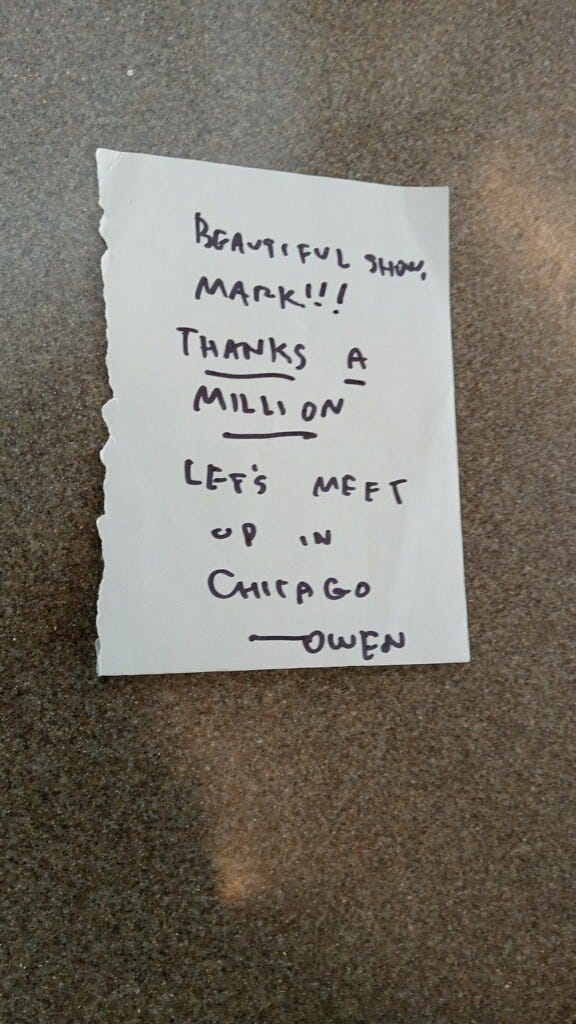 BEAUTIFUL SHOW,
MARK!!!
THANKS A
MILLION
LET'S MEET
UP IN
CHICAGO
—OWEN